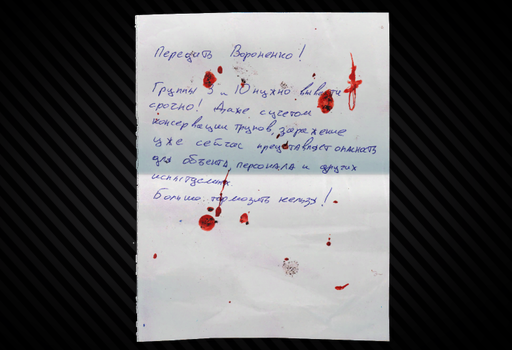 Передать Вороненко!
Группы 3 и 10 нужно вывезти
срочно! Даже с учетом
консервации трупов, заражение
уже сейчас представляет опасность
для объекта, персонала и других
испытуемых.
Больше тормозить нельзя!